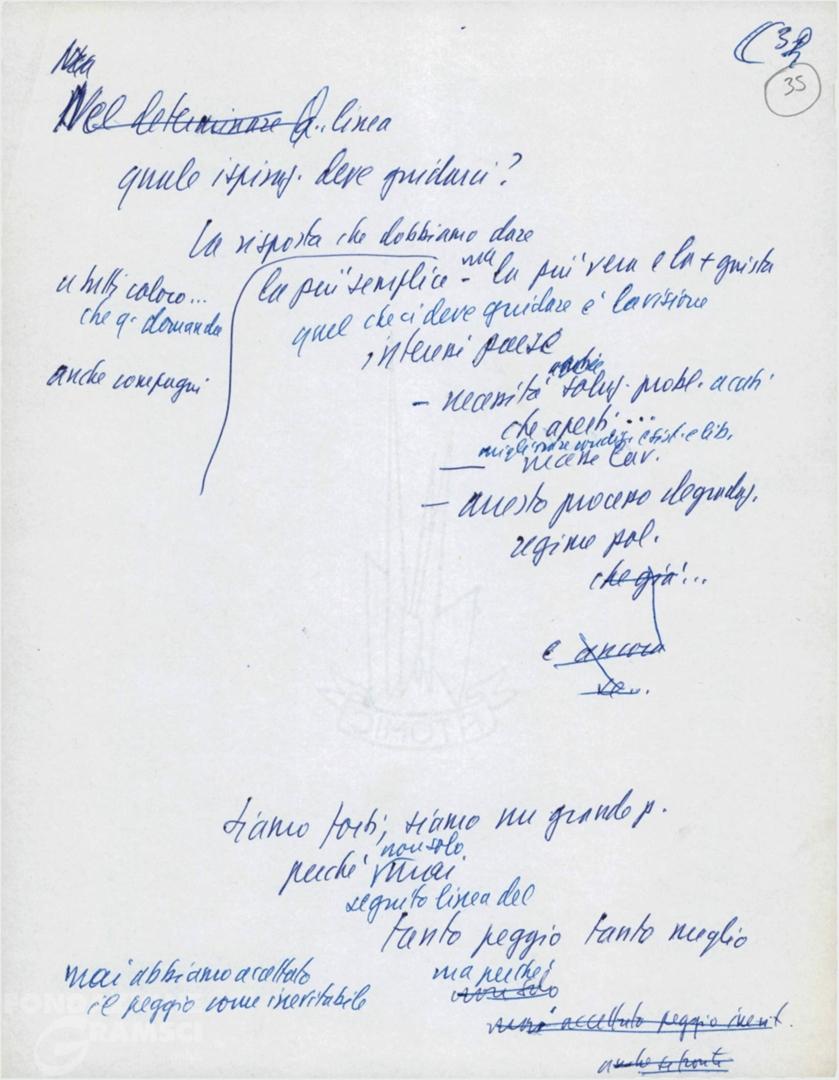 (32
35
Nella
Nel determinare Q. linea
quale ispiraz. deve guidarci?
La risposta che dobbiamo dare
a tutti coloro...
che q. domanda
anche compagni
la più semplice - ma la più vera e la + giusta
quel che ci deve guidare è la visione
interessi paese
- necessità soluz. probl. acuti
anche
che aperti...
migliorare condiz. esist. e lib.
— masse lav.
- arresto processo degradaz.
regime pol.
che già...
e ancora
siamo forti, siamo un grande p.
perché non solo mai
seguito linea del
tanto peggio tanto meglio
mai abbiamo accettato
il peggio come inevitabile
ma perché
non solo
mai accettato peggio inevit.
anche se fronte
FONDA
GRAMSCI